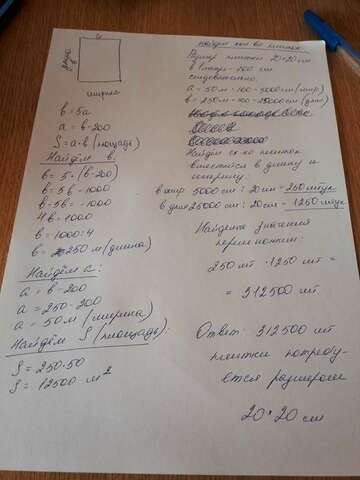 a
длина
ширина
b = 5a
a = b-200
S = a·b (площадь)
Найдём b:
b = 5·(b-200)
b = 5b-1000
b-5b = -1000
4b = 1000
b = 1000:4
b = 250 м (длина)
Найдём a:
a = b-200
a = 250-200
a = 50 м (ширина)
Найдём S (площадь):
S = 250·50
S = 12500 м²
Найдём кол-во плиток:
Размер плитки 20×20 см
в 1 метре - 100 см
следовательно:
a = 50 м · 100 = 5000 см (шир)
b = 250 м · 100 = 25000 см (длин)
Найдём ск-ко плиток
вместится в длину и
ширину:
в шир 5000 см : 20 см = 250 штук
в длин 25000 см : 20 см = 1250 штук
Найденные значения
перемножаем:
250 шт · 1250 шт =
= 312500 шт
Ответ: 312500 шт
плитки потребу-
ется размером
20 × 20 см